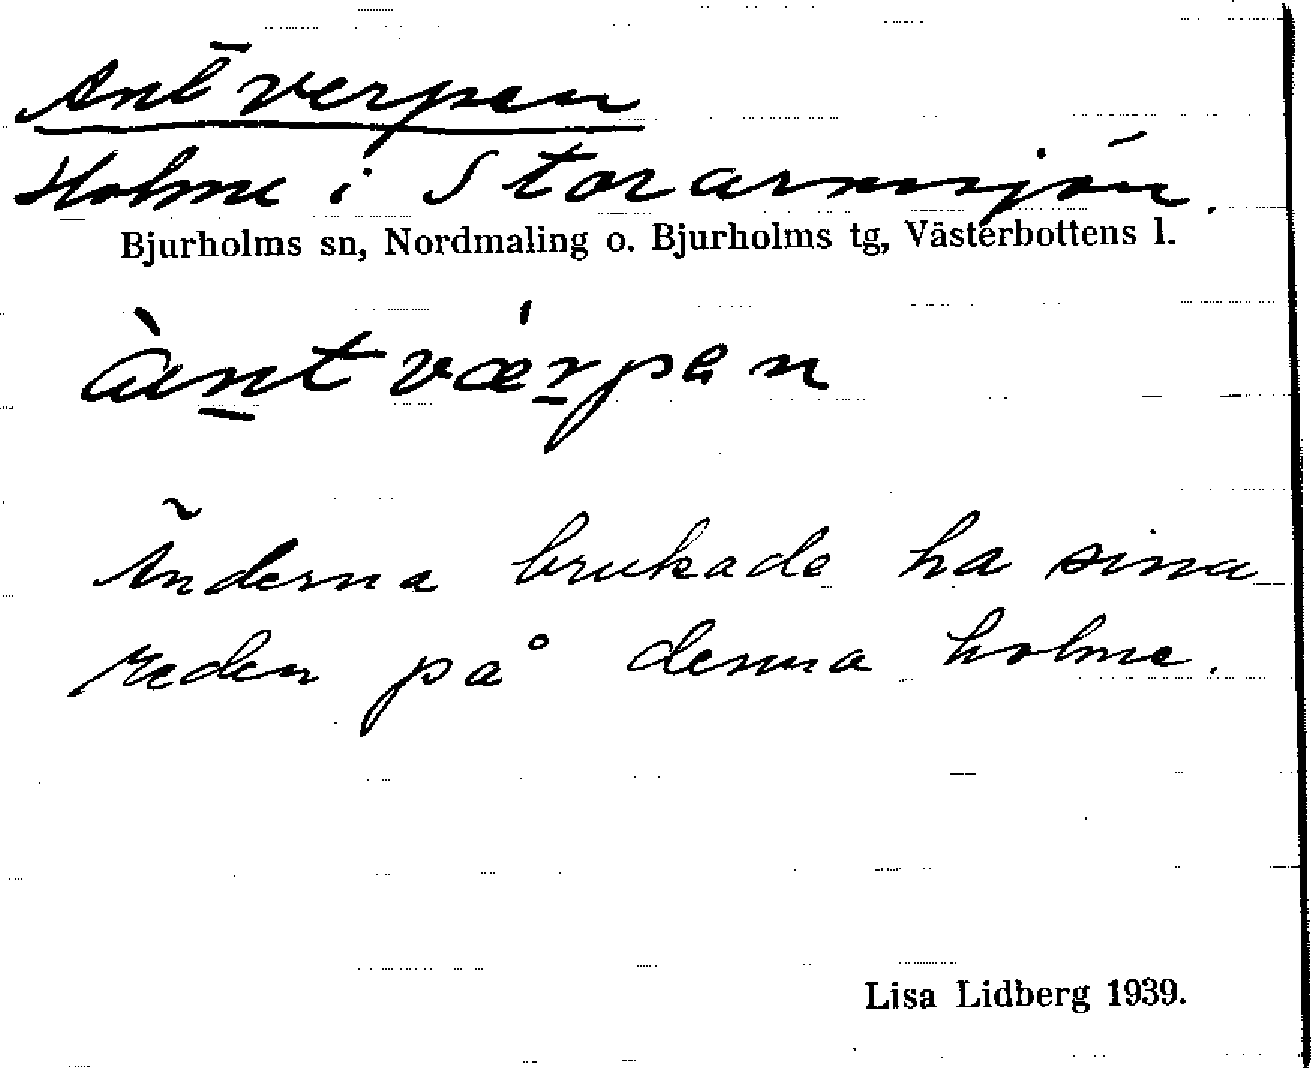 Antverpen
Holme i Storarmsjön.
Bjurholms sn, Nordmaling o. Bjurholms tg, Västerbottens l.
àntvǽrpen
Änderna brukade ha sina
reden på denna holme.
Lisa Lidberg 1939.